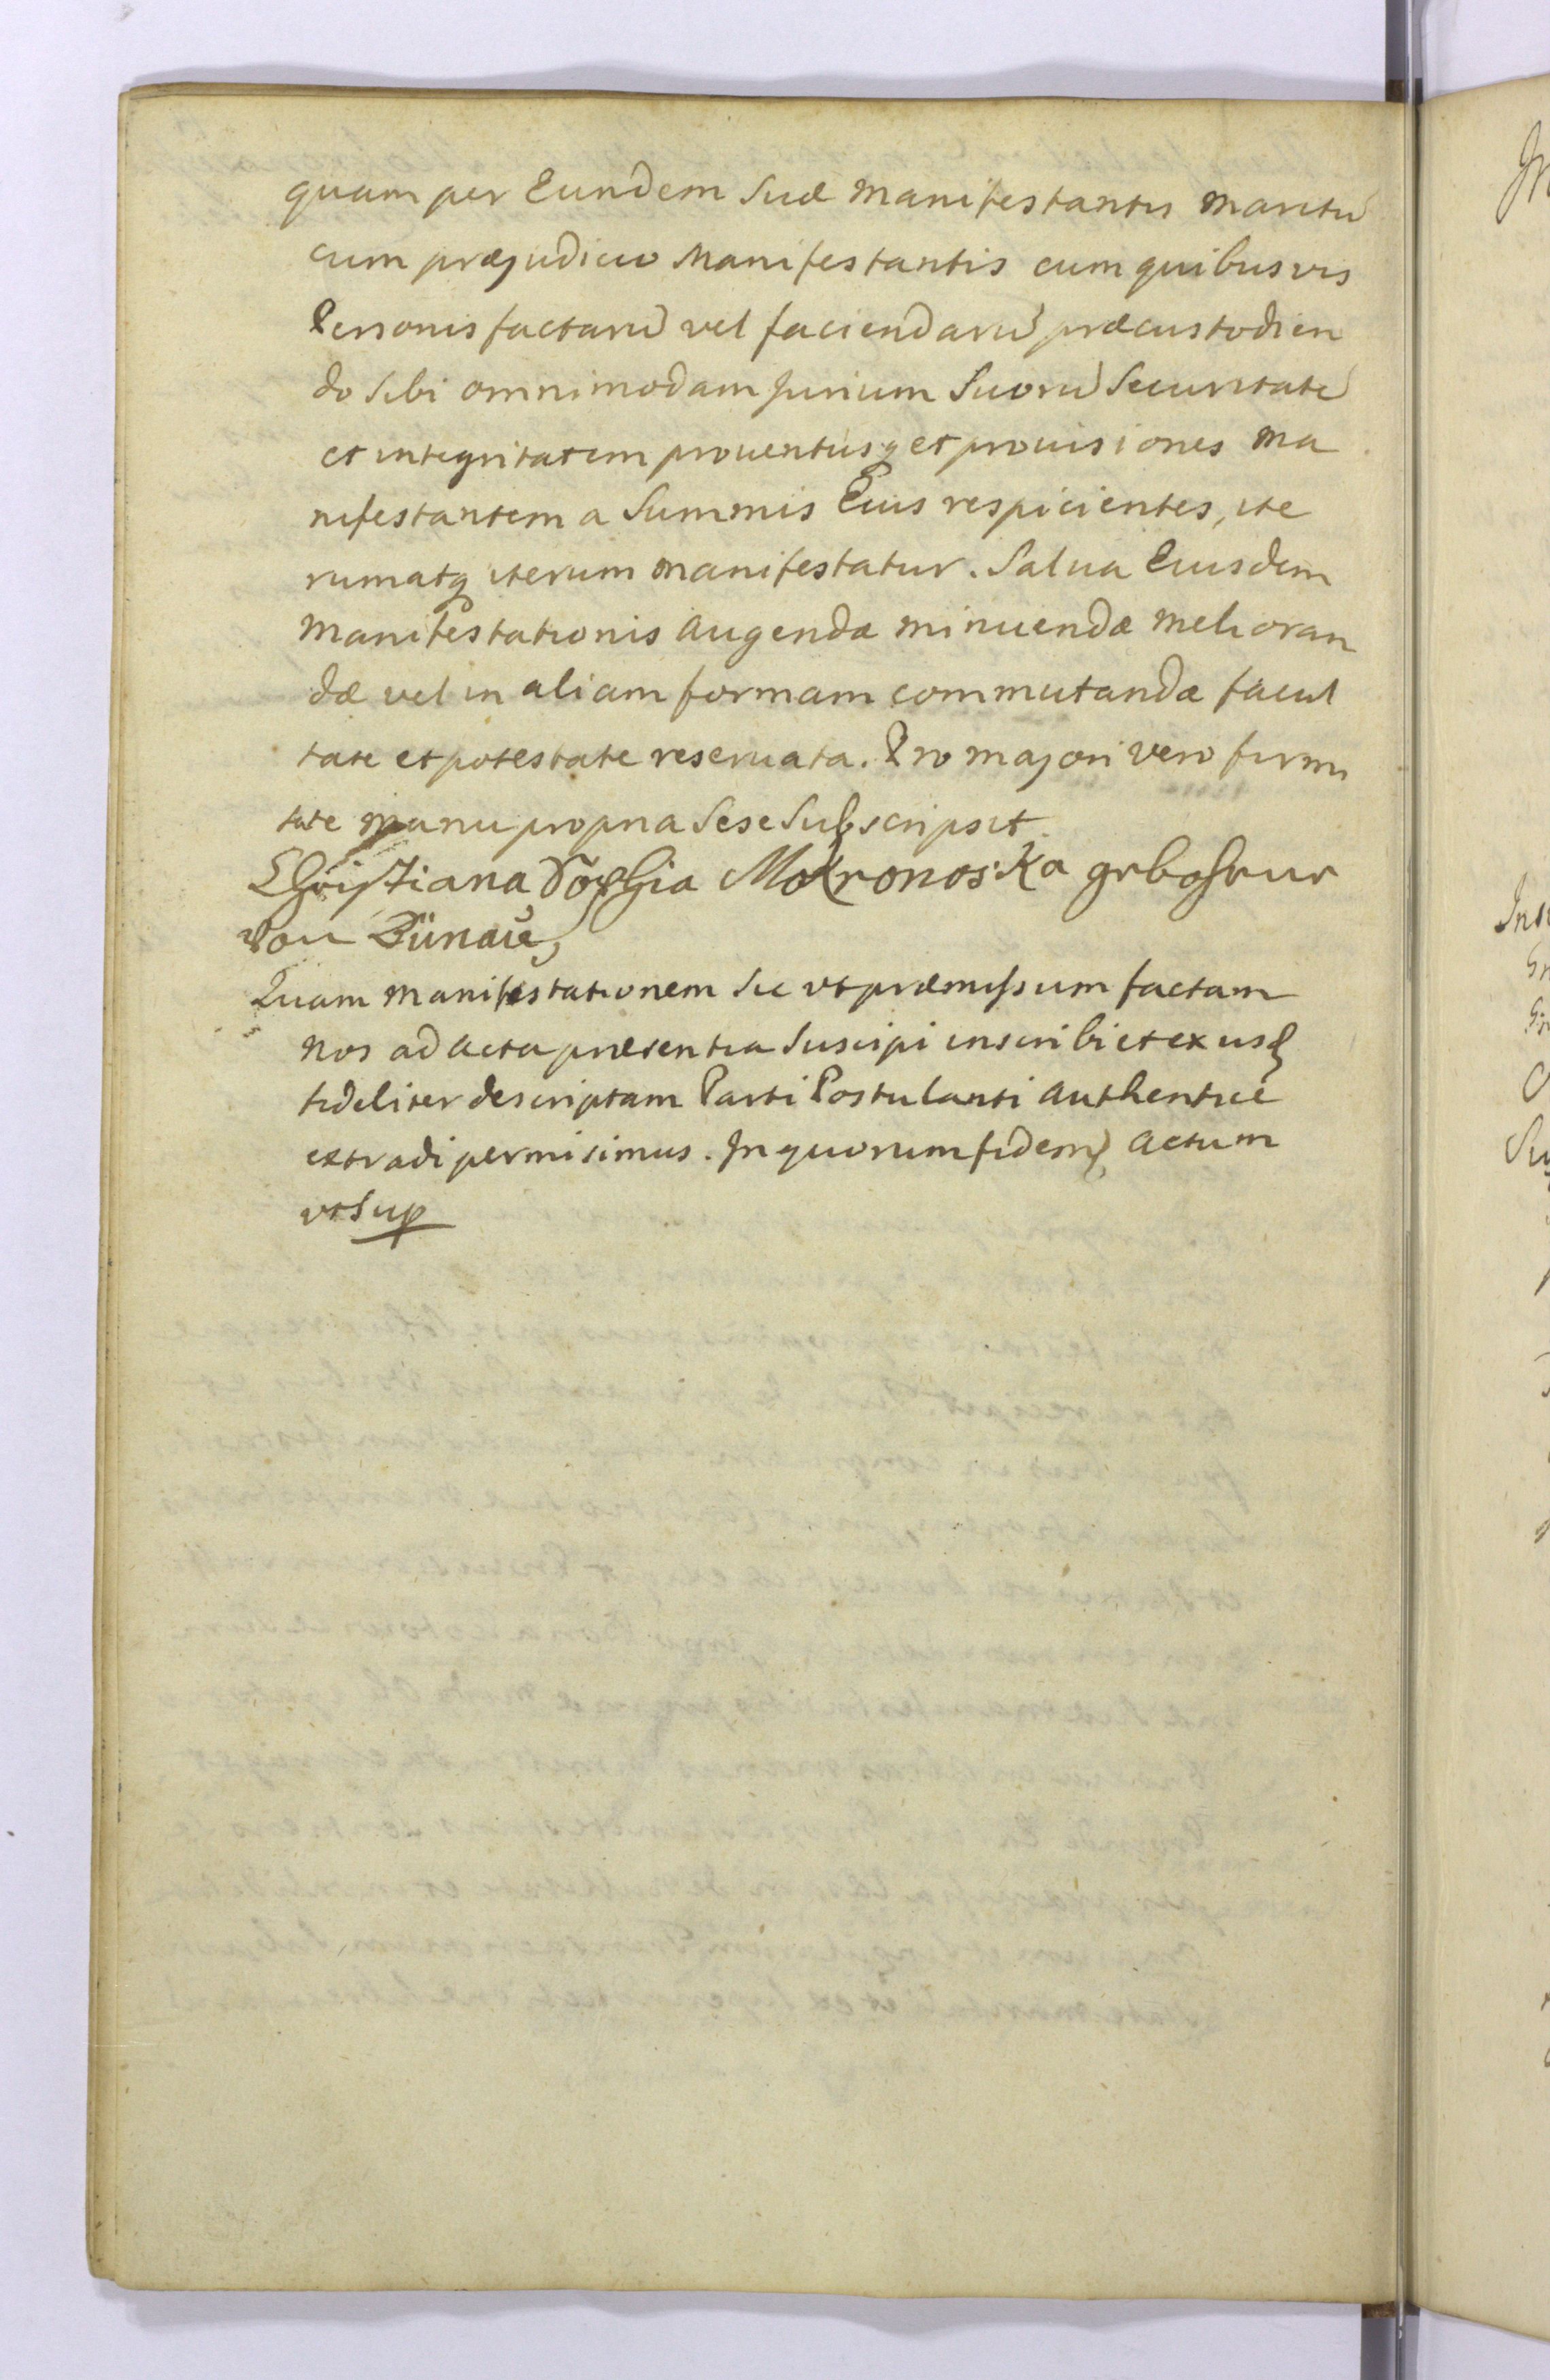 quam per Eundem Suæ Manifestantis maritũ
cum præjudicio Manifestantis cum quibusvis
Personis factarũ vel faciendarũ præcustodien
do Sibi omnimodam Jurium Suorũ Securitatẽ
et integritatem prouentusq̃ et prouisiones Ma
nifestantem a Summis Eius respicientes, ite
rumatq̃ iterum manifestatur. Salua Eiusdem
Manifestationis Augendæ minuendæ melioran
dæ vel in aliam formam commutandæ facul
tate et potestate reseruata. Pro majori vero firmi
tate manu propria Sese Subscripsit.
Christiana Sophia Mokronoska gebohrne
von Bünau,
Quam Manifestationem Sic vt præmissum factam
Nos ad Acta præsentia Suscipi inscribi et ex usd
fideliter descriptam Parti Postulanti Authenticè
extradi permisimus. In quorum fidem Actum
vt Sup
In